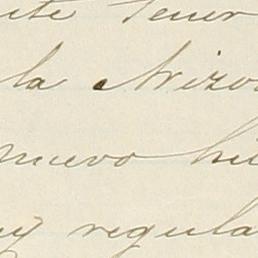 ite tener
la Arizo
nuevo hi
uy regula